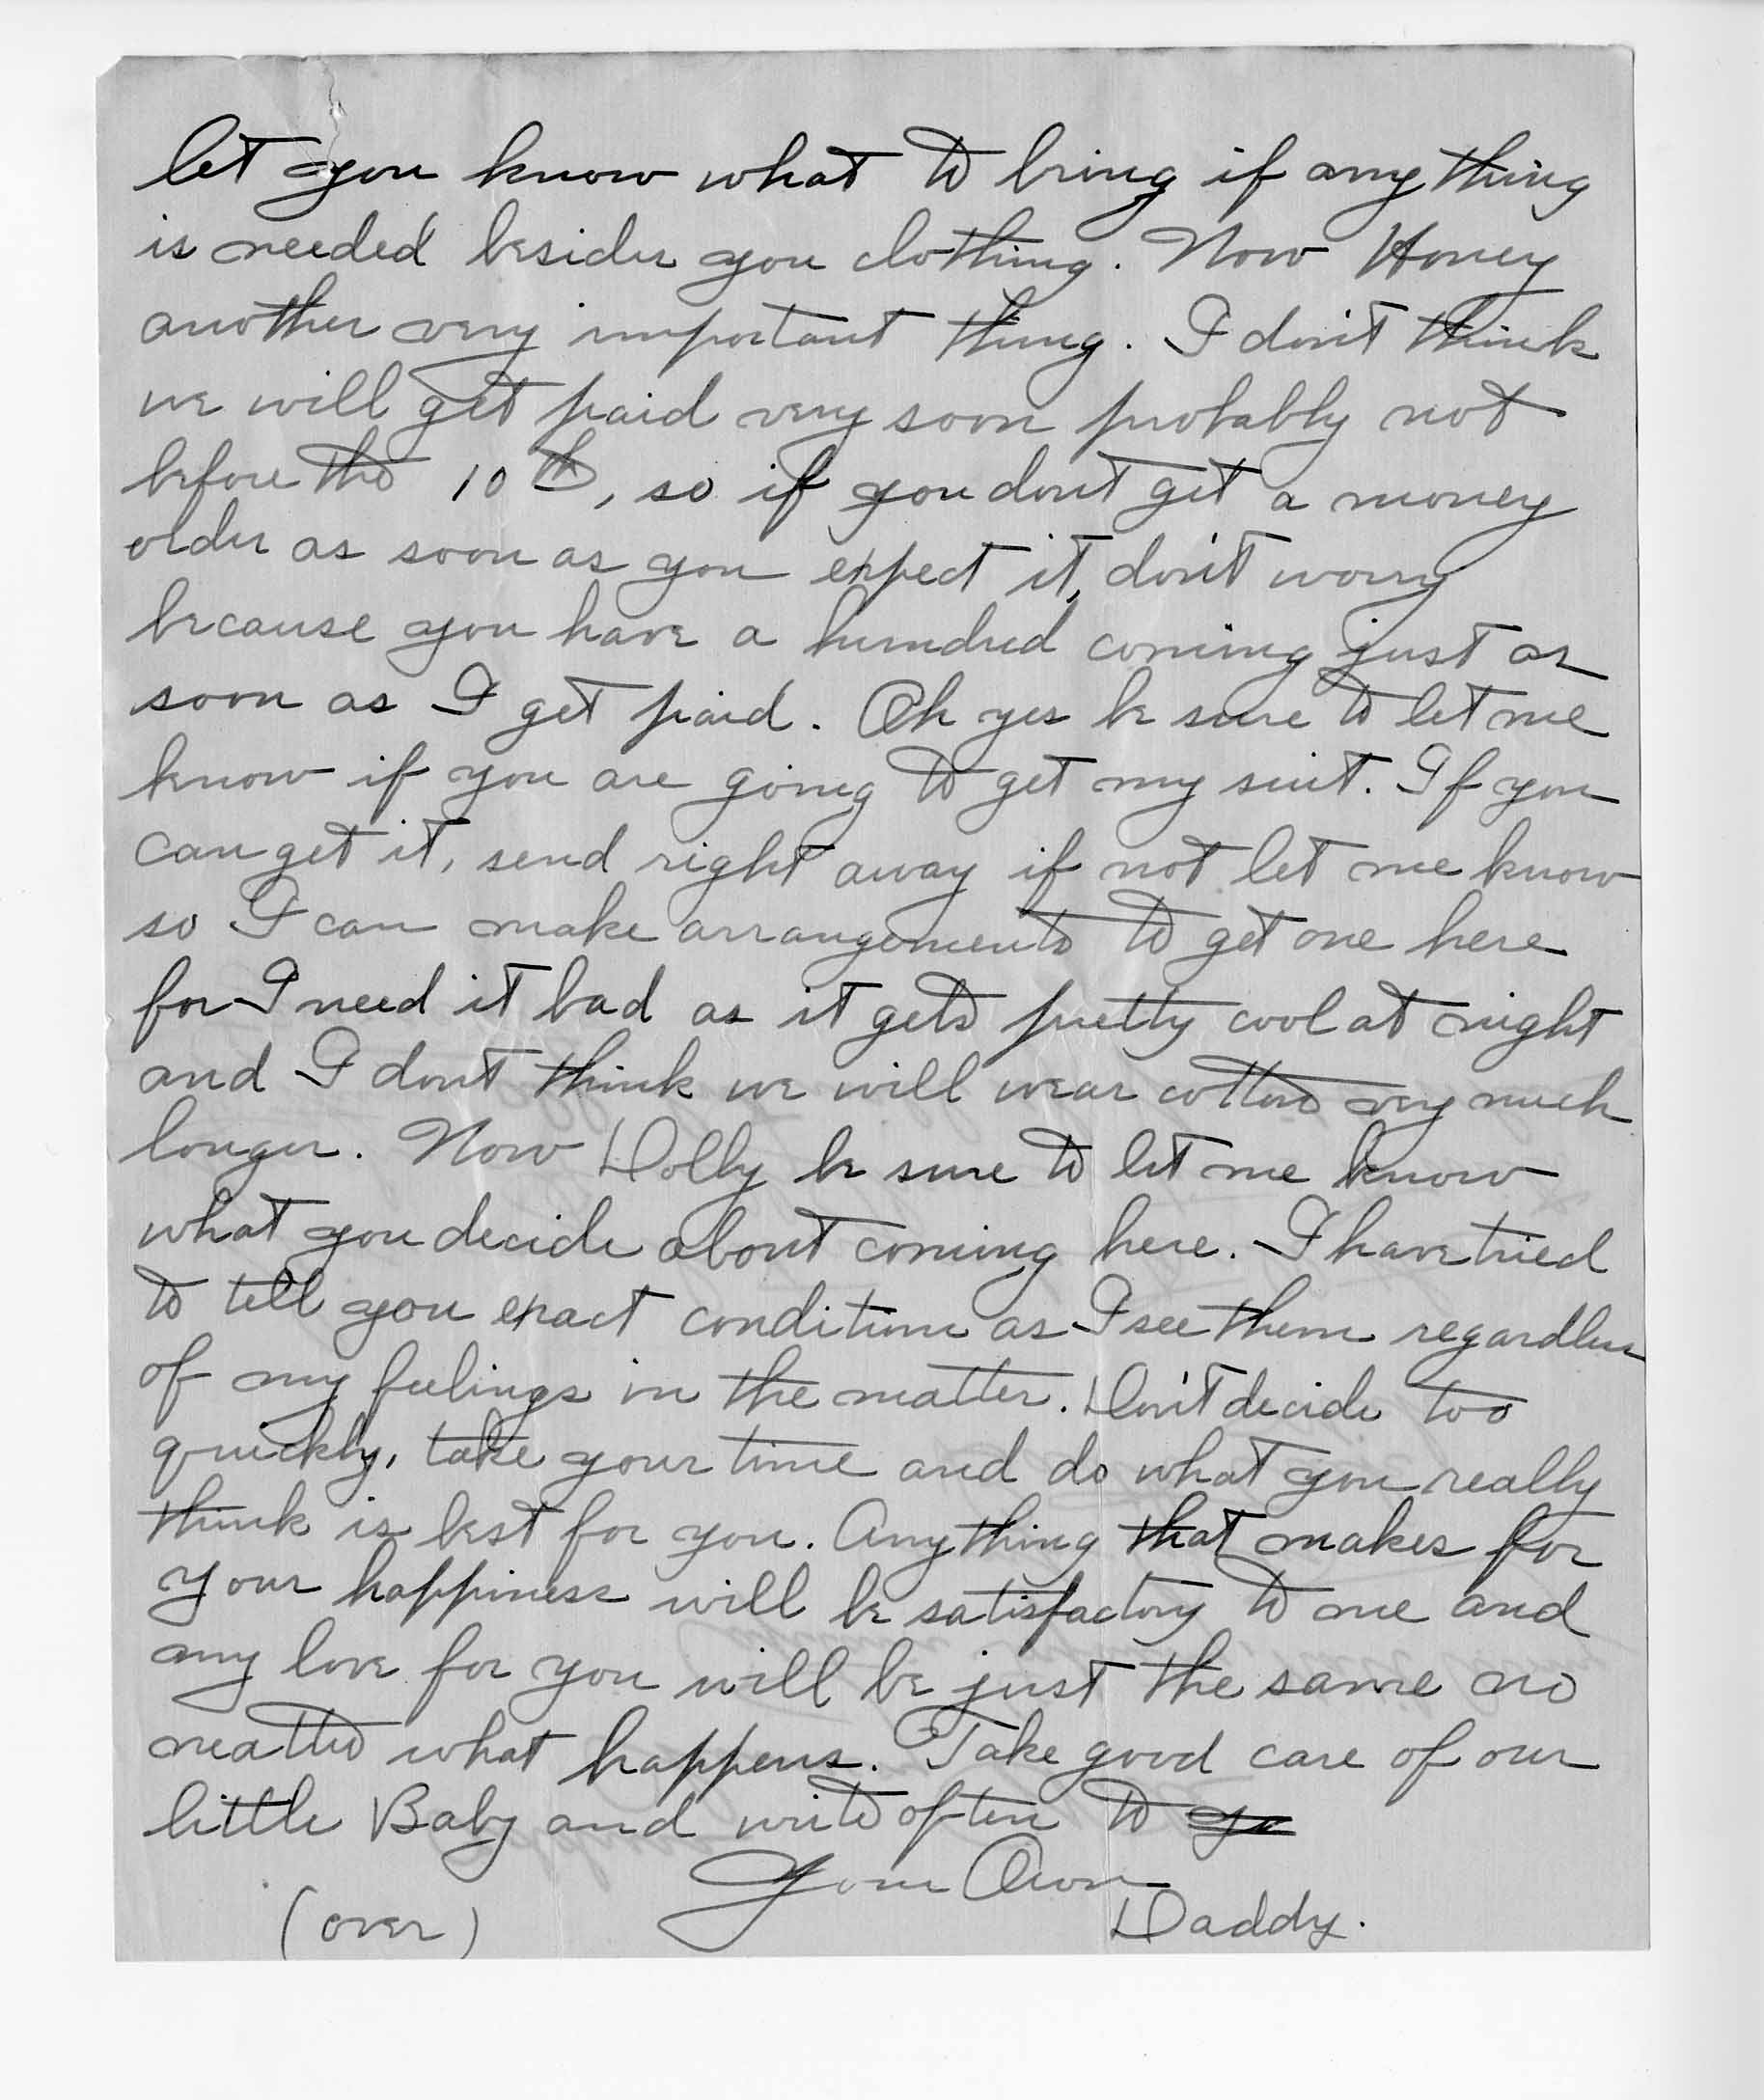 let you know what to bring if any thing
is needed besides you clothing. Now Honey
another very important thing. I don't think
we will get paid very soon probably not
before the 10th, so if you dont get a money
older as soon as you expect it, don't worry
because you have a hundred coming just as
soon as I get paid. Oh yes be sure to let me
know if you are going to get my suit. If you
can get it, send right away if not let me know
so I can make arrangements to get one here
for I need it bad as it gets pretty cool at night
and I dont think we will wear cottons very much
longer. Now Dolly be sure to let me know
what you decide about coming here. I have tried
to tell you exact conditions as I see them regardless
of my feelings in the matter. Don't decide too
quickly, take your time and do what you really
think is best for you. Anything that makes for
your happiness will be satisfactory to me and
my love for you will be just the same no
matter what happens. Take good care of our
little Baby and write often to
Your Own
(over) Daddy.